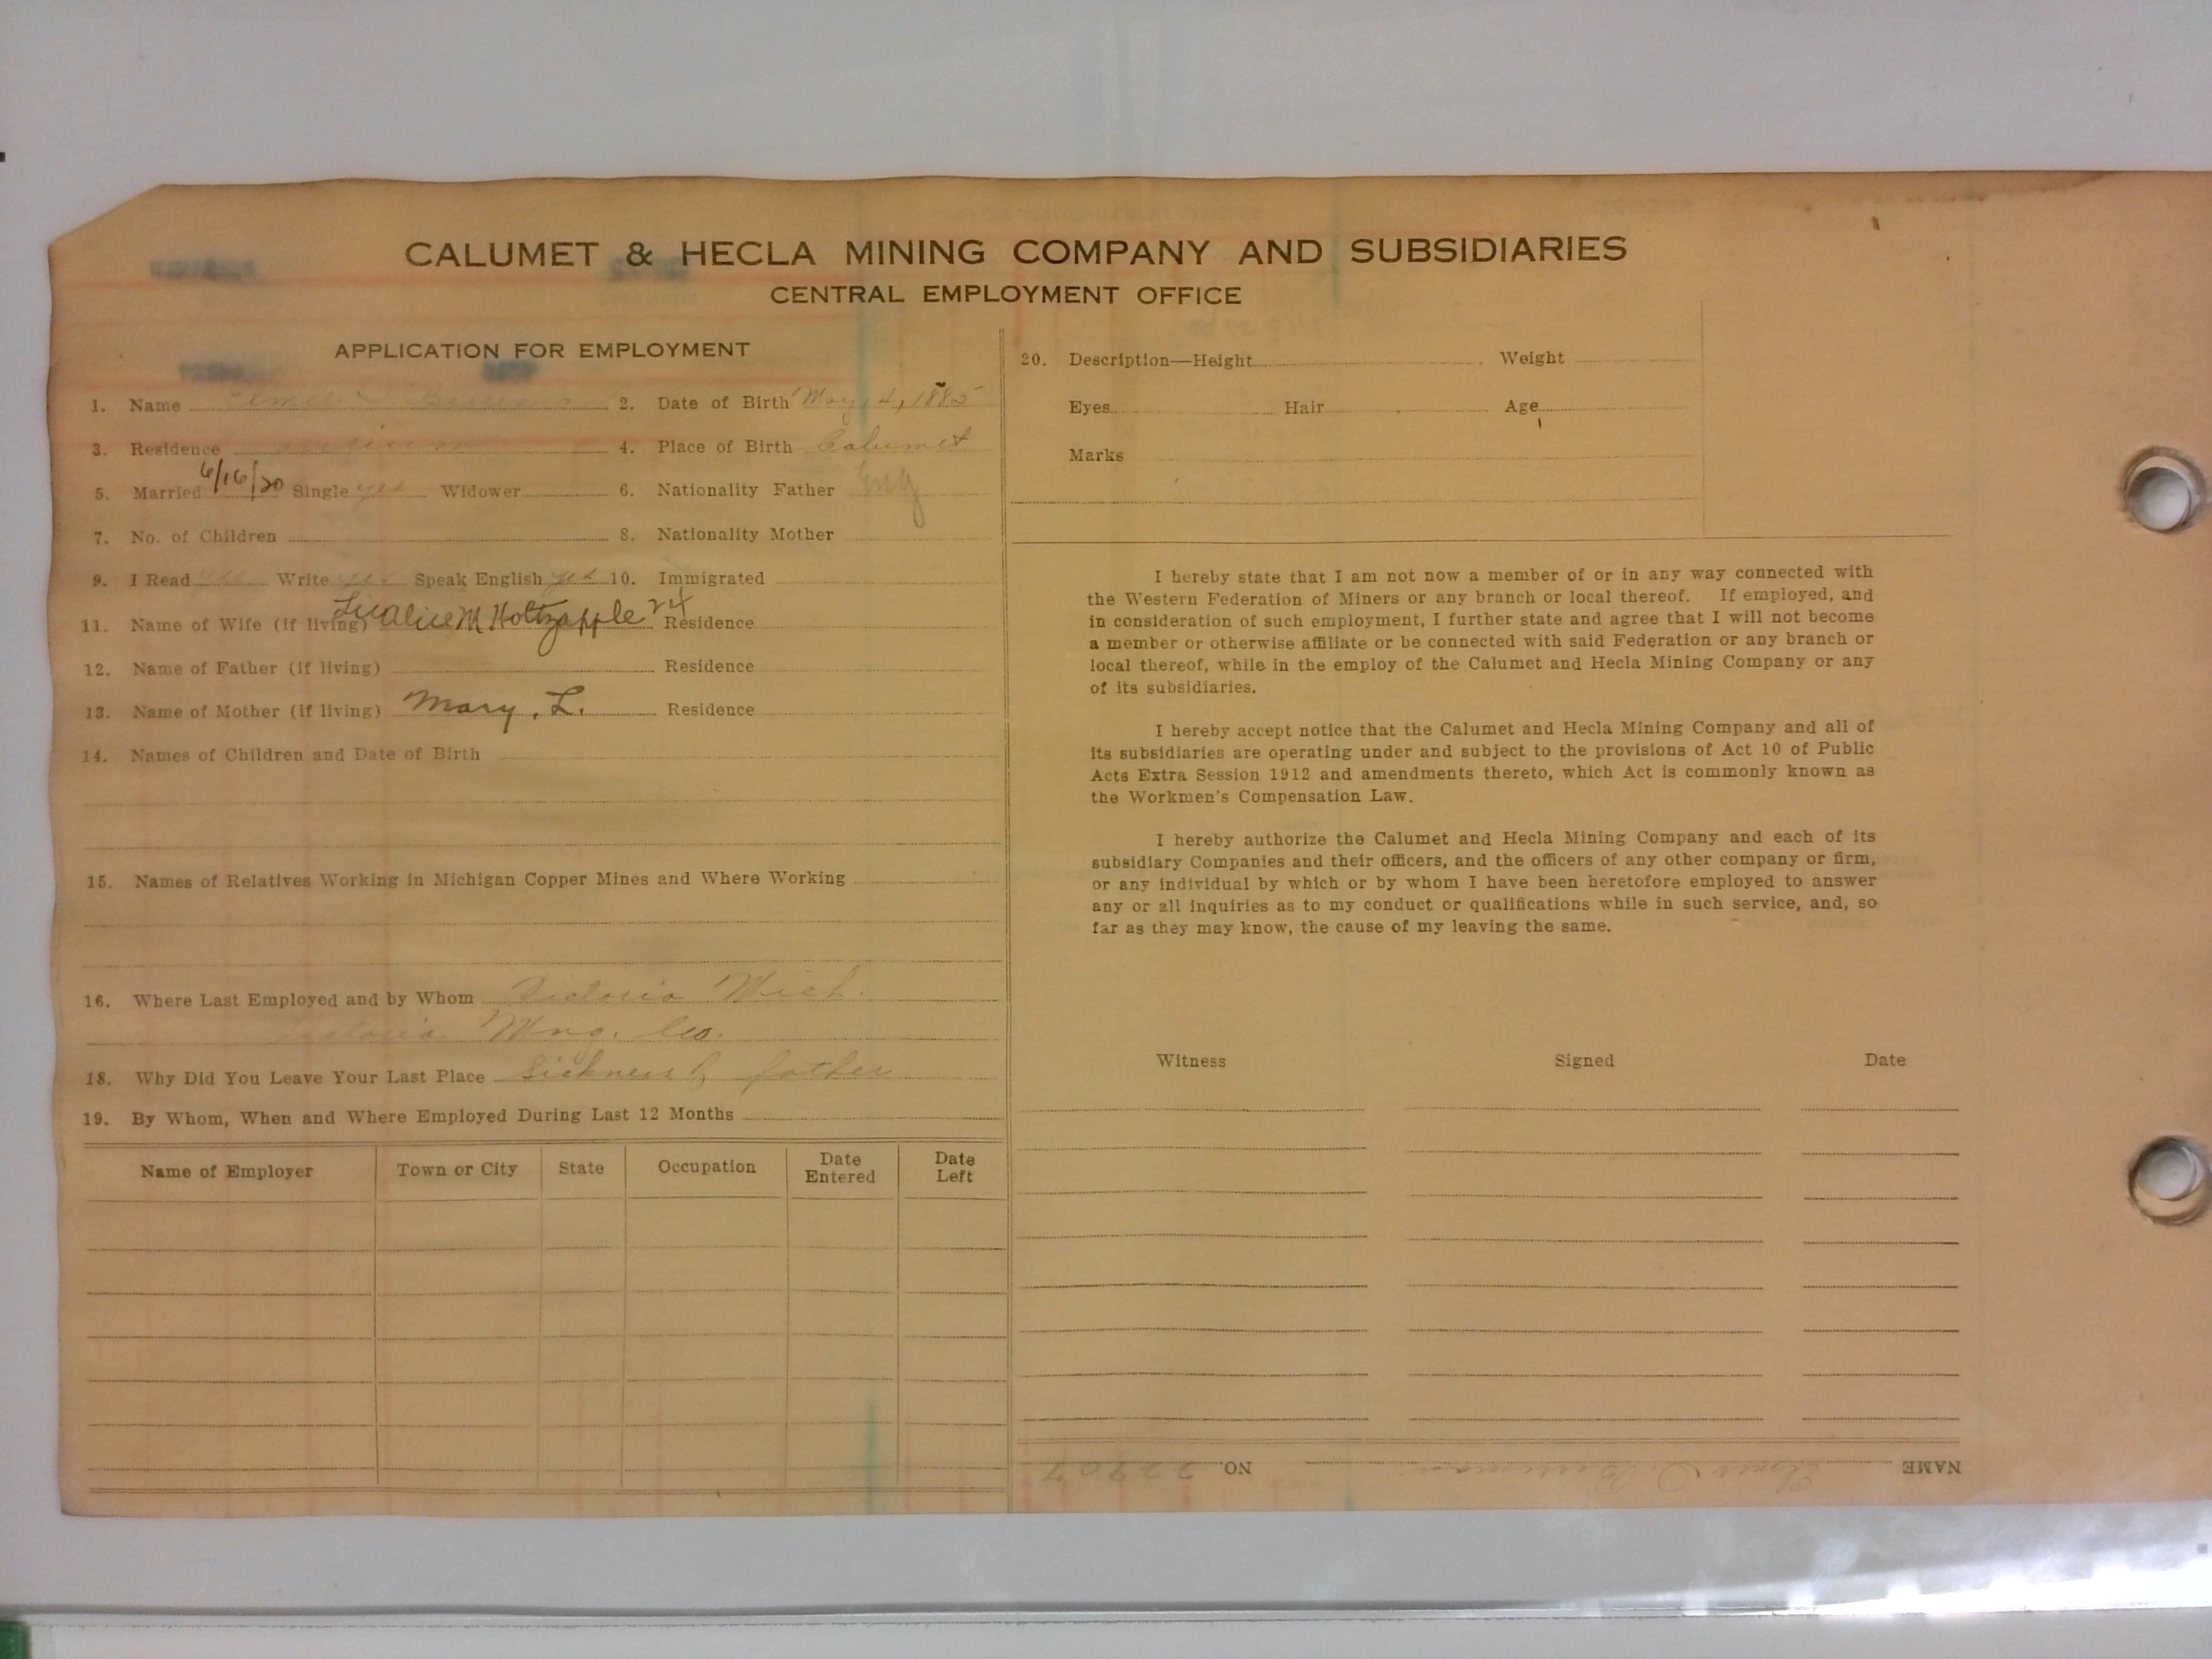 CALUMET & HECLA MINING COMPANY AND SUBSIDIARIES
CENTRAL EMPLOYMENT OFFICE
APPLICATION FOR EMPLOYMENT
1. Name Elmer 2. Date of Birth May 4, 1885
3. Residence 4. Place of Birth Calumet
5. Married 6/16/20 Single yes Widower 6. Nationality Father Eng
7. No. of Children 8. Nationality Mother
9. I Read yes Write yes Speak English yes 10. Immigrated
11. Name of Wife (if living) Alice M Holtzapple 24 Residence
12. Name of Father (if living) Residence
13. Name of Mother (if living) Mary. L. Residence
14. Names of Children and Date of Birth
15. Names of Relatives Working in Michigan Copper Mines and Where Working
16. Where Last Employed and by Whom Victoria Mich.
Victoria Mng. Co.
18. Why Did You Leave Your Last Place Sickness of father
19. By Whom, When and Where Employed During Last 12 Months
Name of Employer Town or City State Occupation Date Entered Date Left
20. Description—Height Weight
Eyes Hair Age
Marks
I hereby state that I am not now a member of or in any way connected with
the Western Federation of Miners or any branch or local thereof. If employed, and
in consideration of such employment, I further state and agree that I will not become
a member or otherwise affiliate or be connected with said Federation or any branch or
local thereof, while in the employ of the Calumet and Hecla Mining Company or any
of its subsidiaries.
I hereby accept notice that the Calumet and Hecla Mining Company and all of
its subsidiaries are operating under and subject to the provisions of Act 10 of Public
Acts Extra Session 1912 and amendments thereto, which Act is commonly known as
the Workmen's Compensation Law.
I hereby authorize the Calumet and Hecla Mining Company and each of its
subsidiary Companies and their officers, and the officers of any other company or firm,
or any individual by which or by whom I have been heretofore employed to answer
any or all inquiries as to my conduct or qualifications while in such service, and, so
far as they may know, the cause of my leaving the same.
Witness Signed Date
NAME Elmer NO. 22907